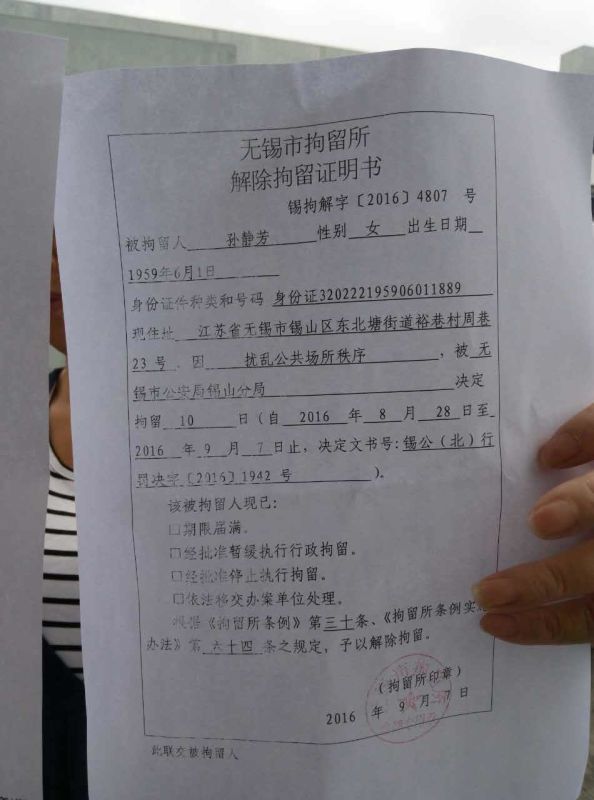 无锡市拘留所
解除拘留证明书
锡拘解字〔2016〕4807 号
被拘留人 孙静芳 性别 女 出生日期
1959年6月1日
身份证件种类和号码 身份证320222195906011889
现住址 江苏省无锡市锡山区东北塘街道裕巷村周巷
23号 ，因 扰乱公共场所秩序 ，被 无
锡市公安局锡山分局 决定
拘留 10 日（自 2016 年 8 月 28 日至
2016 年 9 月 7 日止，决定文书号：锡公（北）行
罚决字〔2016〕1942 号 ）。
该被拘留人现已：
□期限届满。
□经批准暂缓执行行政拘留。
□经批准停止执行拘留。
□依法移交办案单位处理。
根据《拘留所条例》第三十条、《拘留所条例实
办法》第 六十四 条之规定，予以解除拘留。
（拘留所印章）
2016 年 9 月 7 日
此联交被拘留人